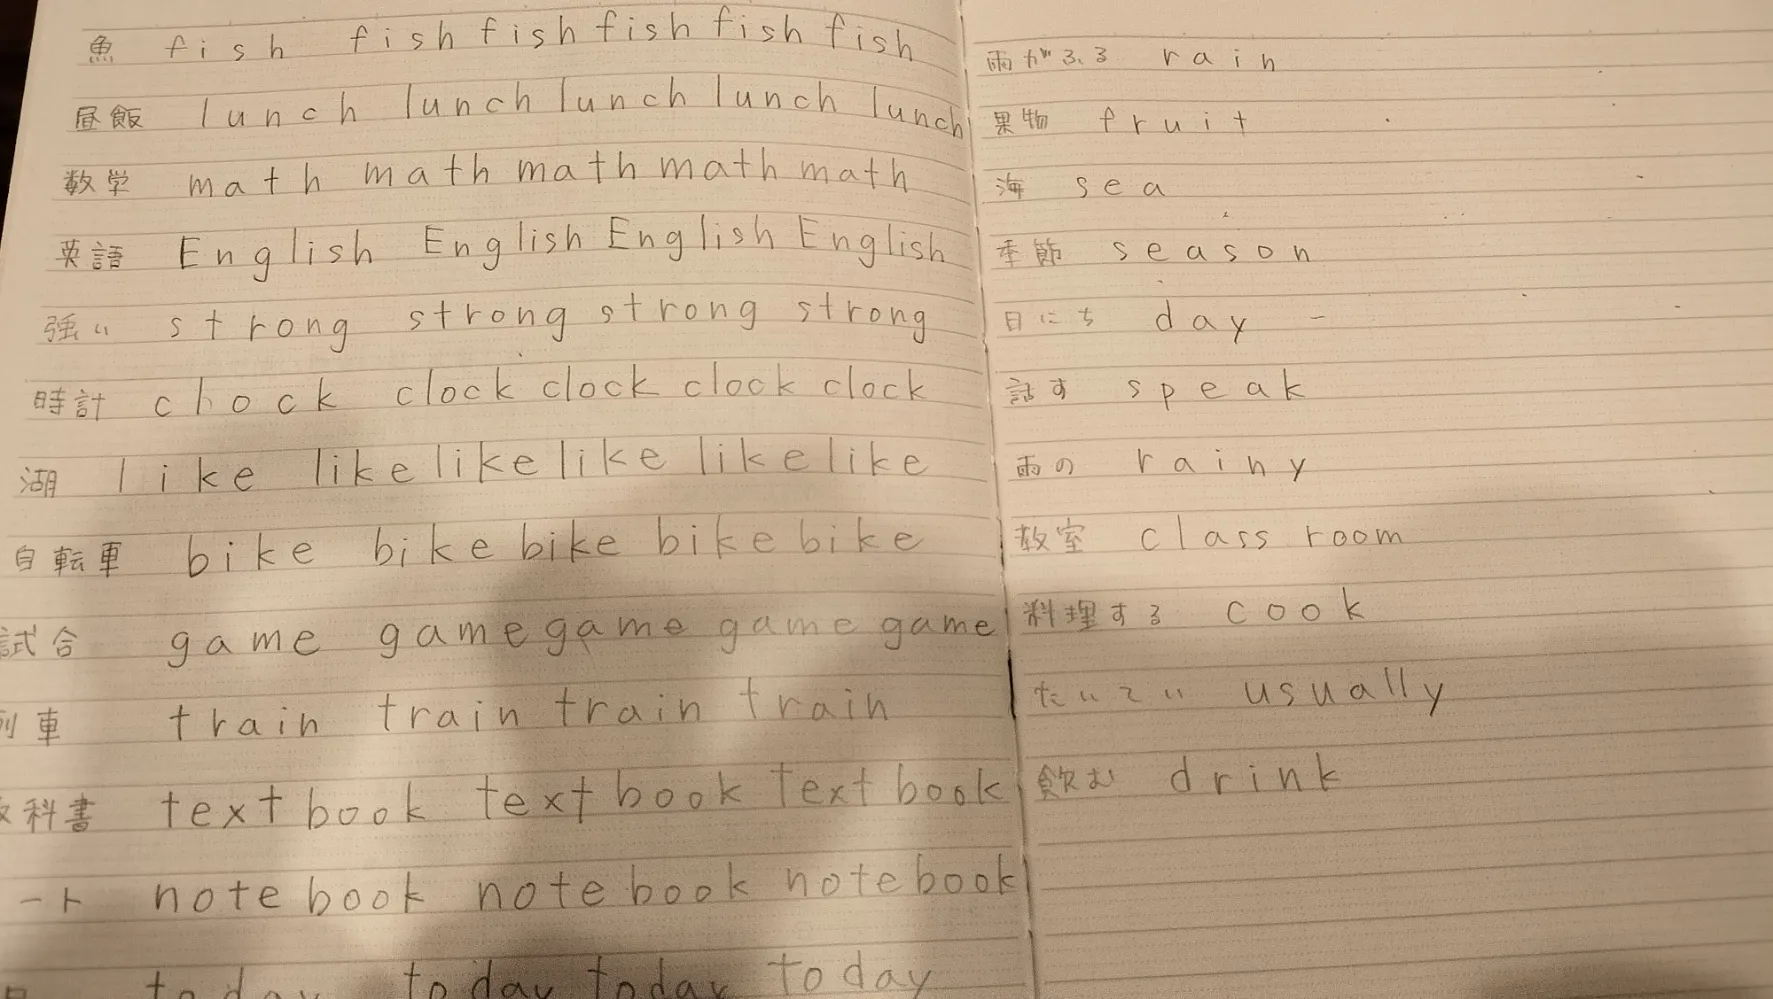 魚 fish fish fish fish fish fish
昼飯 lunch lunch lunch lunch lunch
数学 math math math math math
英語 English English English English
強い strong strong strong strong
時計 chock clock clock clock clock
湖 like like like like like like
自転車 bike bike bike bike bike
試合 game game game game game
列車 train train train train
教科書 textbook textbook textbook
ート notebook notebook notebook
today today today today
雨がふる rain
果物 fruit
海 sea
季節 season
日にち day
話す speak
雨の rainy
教室 class room
料理する cook
たいてい usually
飲む drink